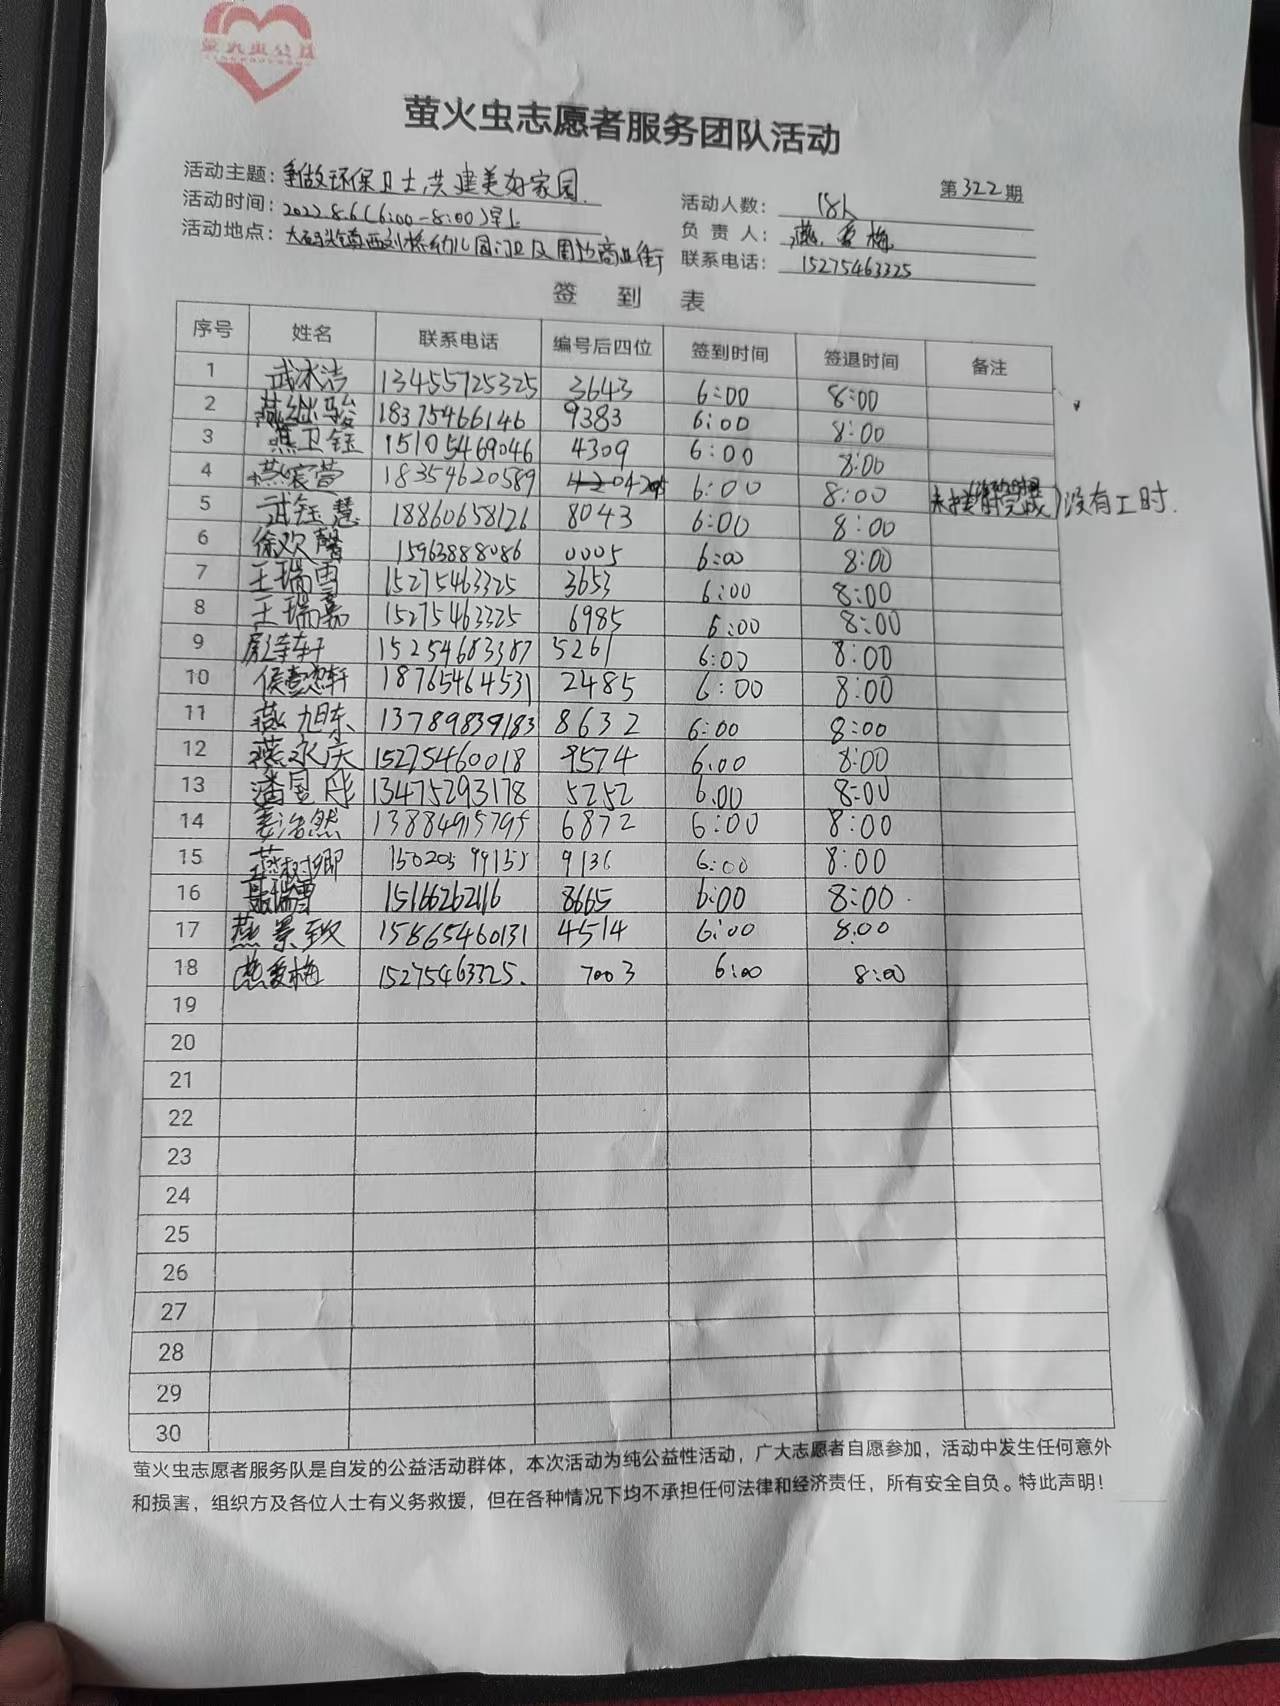 萤火虫公益
萤火虫志愿者服务团队活动
第322期
活动主题：争做环保卫士,共建美好家园.
活动时间：2022.8.6(6:00-8:00)早上
活动地点：大码头镇西刘桥幼儿园门卫及周边商业街
活动人数：18人
负责人：燕爱梅
联系电话：15275463325
签到表
序号 姓名 联系电话 编号后四位 签到时间 签退时间 备注
1 武冰洁 13455725325 3643 6:00 8:00
2 燕继骏 18375466146 9383 6:00 8:00
3 燕卫钰 15105469046 4309 6:00 8:00
4 燕宸萱 18354620589 6:00 8:00 没有工时.
5 武钰慧 18860658126 8043 6:00 8:00
6 徐欢馨 15963888086 0005 6:00 8:00
7 王瑞雪 15275463325 3653 6:00 8:00
8 王瑞嘉 15275463325 6985 6:00 8:00
9 15254683387 5261 6:00 8:00
10 侯懿轩 18765464531 2485 6:00 8:00
11 燕旭东 13789839183 8632 6:00 8:00
12 燕永庆 15275460018 9574 6.00 8:00
13 潘国彤 13475293178 5252 6.00 8:00
14 姜浩然 13884915795 6872 6:00 8:00
15 燕树卿 15020599155 9136 6:00 8:00
16 聂瑞雪 15166262116 8665 6:00 8:00
17 燕景致 15865460131 4514 6:00 8.00
18 燕爱梅 15275463325. 7003 6:00 8:00
19
20
21
22
23
24
25
26
27
28
29
30
萤火虫志愿者服务队是自发的公益活动群体，本次活动为纯公益性活动，广大志愿者自愿参加，活动中发生任何意外
和损害，组织方及各位人士有义务救援，但在各种情况下均不承担任何法律和经济责任，所有安全自负。特此声明！